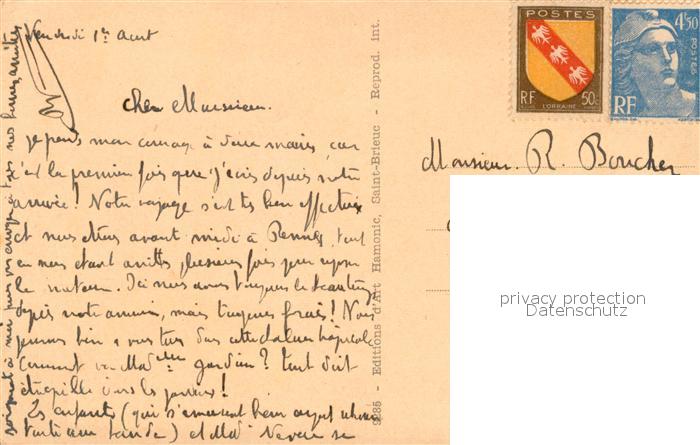 Vendredi 1er Aout
Cher Monsieur.
Je prends mon courage à deux mains, car
c'est la première fois que j'écris depuis notre
arrivée! Notre voyage s'est très bien effectué
et nous étions avant midi à Rennes, tout
en nous étant arrêtés plusieurs fois pour
le moteur. Ici nous avons toujours le beau temps
depuis notre arrivée, mais toujours frais! Nous
pensons bien à vous tous dans cette chaleur tropicale
Comment va Mad gardien? tout doit
être grillé dans les jardins!
Les enfants (qui s'amusent bien
) et Mad se
à tous nos bonnes amitiés
POSTES
RF
50c
LORRAINE
4f50
POSTES
RF
Monsieur R. Boucher
9285 - Editions d'Art Hamonic, Saint-Brieuc - Reprod. int.
privacy protection
Datenschutz